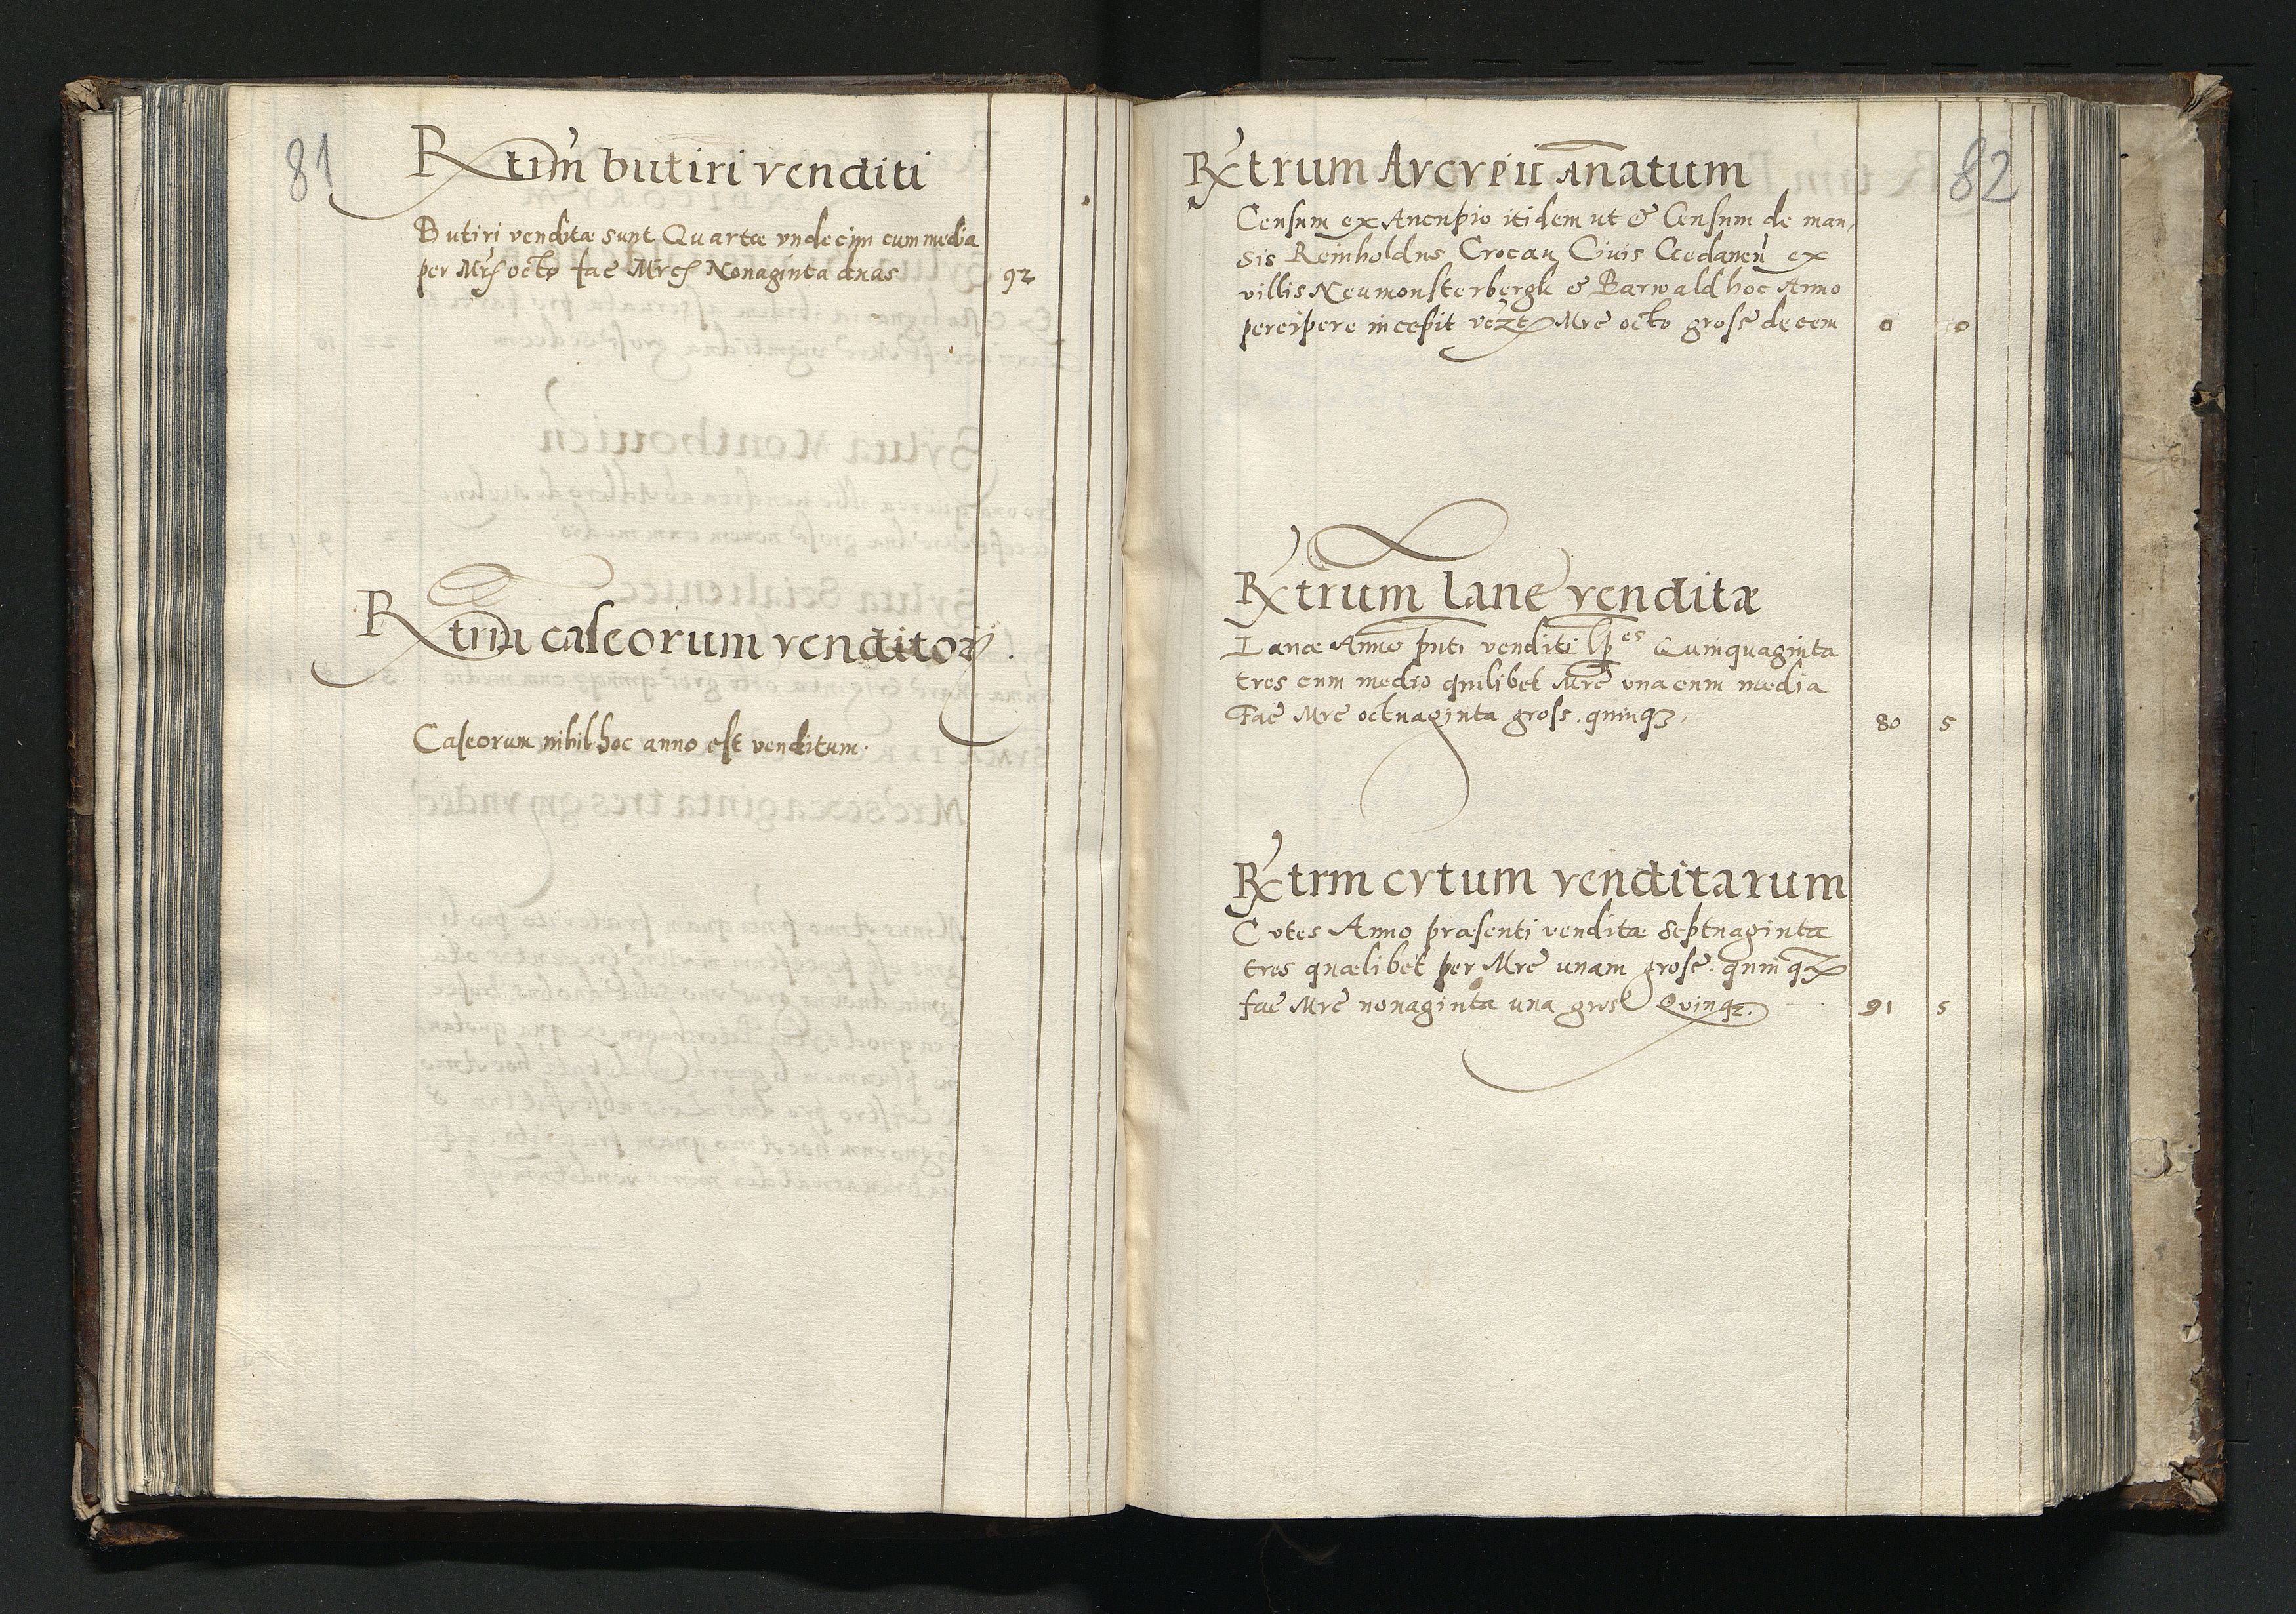 81
Rxtrm butiri venditi
Butiri venditæ sunt Quartæ vndecim cum media
per Mrc octo fac Mrc Nonaginta duas 92
Rxtrm caseorum venditor
Caseorum nihil hoc anno est venditum.
82
Rxtrum Avcvpii Anatum
Censum ex Aucupio itidem ut & Censum de man,
sis Reinholdus Crocau Ciuis
villis Neumonsterbergk & Barwald hoc Anno
percipere incepit Mrc octo gross decem
Rxtrum lane venditæ
Lanæ Anno pnti venditi lp es Quinquaginta
tres cum medio quilibet Mrc una cum media
Fac Mrc octuaginta gross. quinq3. 80 5
Rxtrm cvtum venditarum
Cvtes Anno præsenti venditæ Septuaginta
tres quælibet per Mrc unam gross. quinq3
fac Mrc nonaginta una gros Qvinq3. 91 5